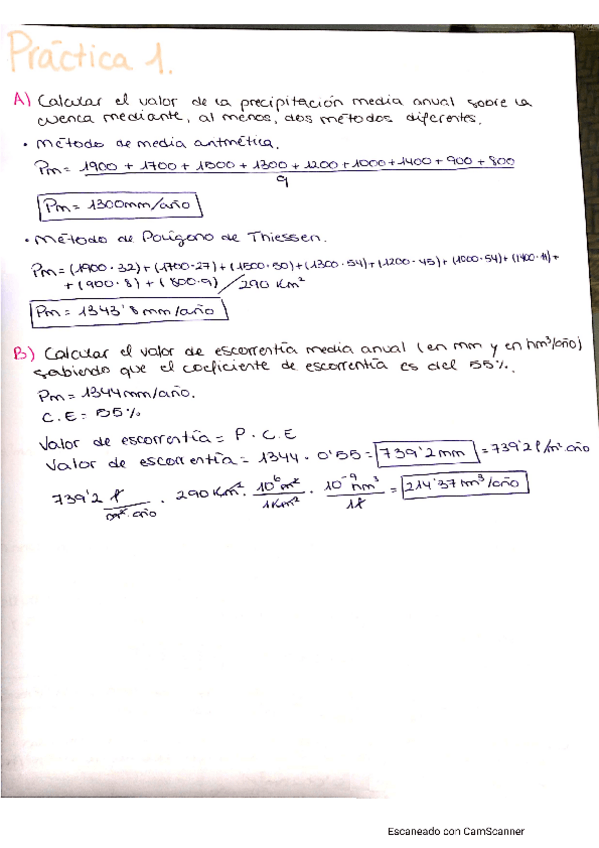 Práctica 1.
A) Calcular el valor de la precipitación media anual sobre la
cuenca mediante, al menos, dos métodos diferentes.
· Método de media aritmética.
Pm = 1900 + 1700 + 1500 + 1300 + 1200 + 1000 + 1400 + 900 + 800
9
Pm = 1300mm/año
· Método de Polígono de Thiessen.
Pm = (1900·32)+(1700·27)+(1500·50)+(1300·54)+(1200·45)+(1000·54)+(1400·11)+
+(900·8)+(800·9) / 290 Km²
Pm = 1343'8 mm/año
B) Calcular el valor de escorrentía media anual (en mm y en hm³/año)
sabiendo que el coeficiente de escorrentía es del 55%.
Pm = 1344mm/año.
C.E = 55%
Valor de escorrentía = P · C.E
Valor de escorrentía = 1344 · 0'55 = 739'2 mm = 739'2 l/m² año
739'2 l/m² año · 290 Km² · 10⁶ m²/1Km² · 10⁻⁹ hm³/1l = 214'37 hm³/año
Escaneado con CamScanner